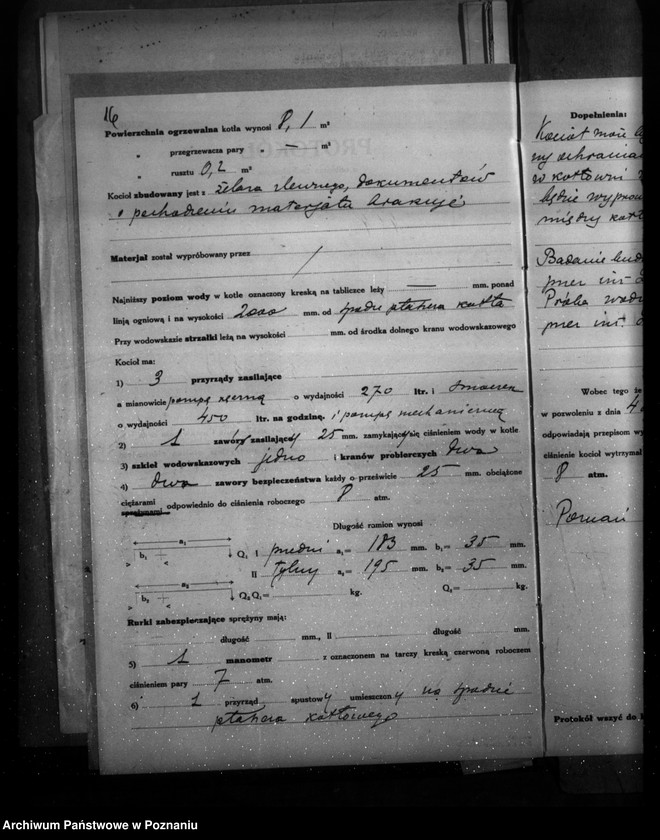 16
Powierzchnia ogrzewalna kotła wynosi 8,1 m²
„ przegrzewacza pary . — m²
„ rusztu 0,2 m²
Kocioł zbudowany jest z żelaza zlewnego, dokumentów
o pochodzeniu materjału brakuje
Materjał został wypróbowany przez /
Najniższy poziom wody w kotle oznaczony kreską na tabliczce leży — mm. ponad
linją ogniową i na wysokości 2000 mm. od spodu płaszcza kotła
Przy wodowskazie strzałki leżą na wysokości mm. od środka dolnego kranu wodowskazowego
Kocioł ma:
1) 3 przyrządy zasilające
a mianowicie pompę ręczną o wydajności 270 ltr. i smoczek
o wydajności 450 ltr. na godzinę. i pompę mechaniczną
2) 1 zawory zasilający 25 mm. zamykający się ciśnieniem wody w kotle
3) szkieł wodowskazowych jedno i kranów probierczych dwa
4) dwa zawory bezpieczeństwa każdy o prześwicie 25 mm. obciążone
ciężarami
sprężynami odpowiednio do ciśnienia roboczego 8 atm.
Długość ramion wynosi
a₁ b₁ Q₁ I przedni a₁= 183 mm. b₁= 35 mm.
II tylny a₂= 195 mm. b₂= 35 mm.
a₂ b₂ Q₂ Q₁= kg. Q₂= kg.
Rurki zabezpieczające sprężyny mają:
długość mm., II długość mm.
5) 1 manometr z oznaczonem na tarczy kreską czerwoną roboczem
ciśnieniem pary 7 atm.
6) 1 przyrząd spustowy umieszczony na spodzie
płaszcza kotłowego
Dopełnienia:
Kocioł
w kotłowni
będzie
między
Badanie
przez inż.
Próba
przez inż.
Wobec tego że
w pozwoleniu z dnia 4
odpowiadają przepisom wy
ciśnienie kocioł wytrzymał
8 atm.
Poznań
Protokół wszyć do
Archiwum Państwowe w Poznaniu